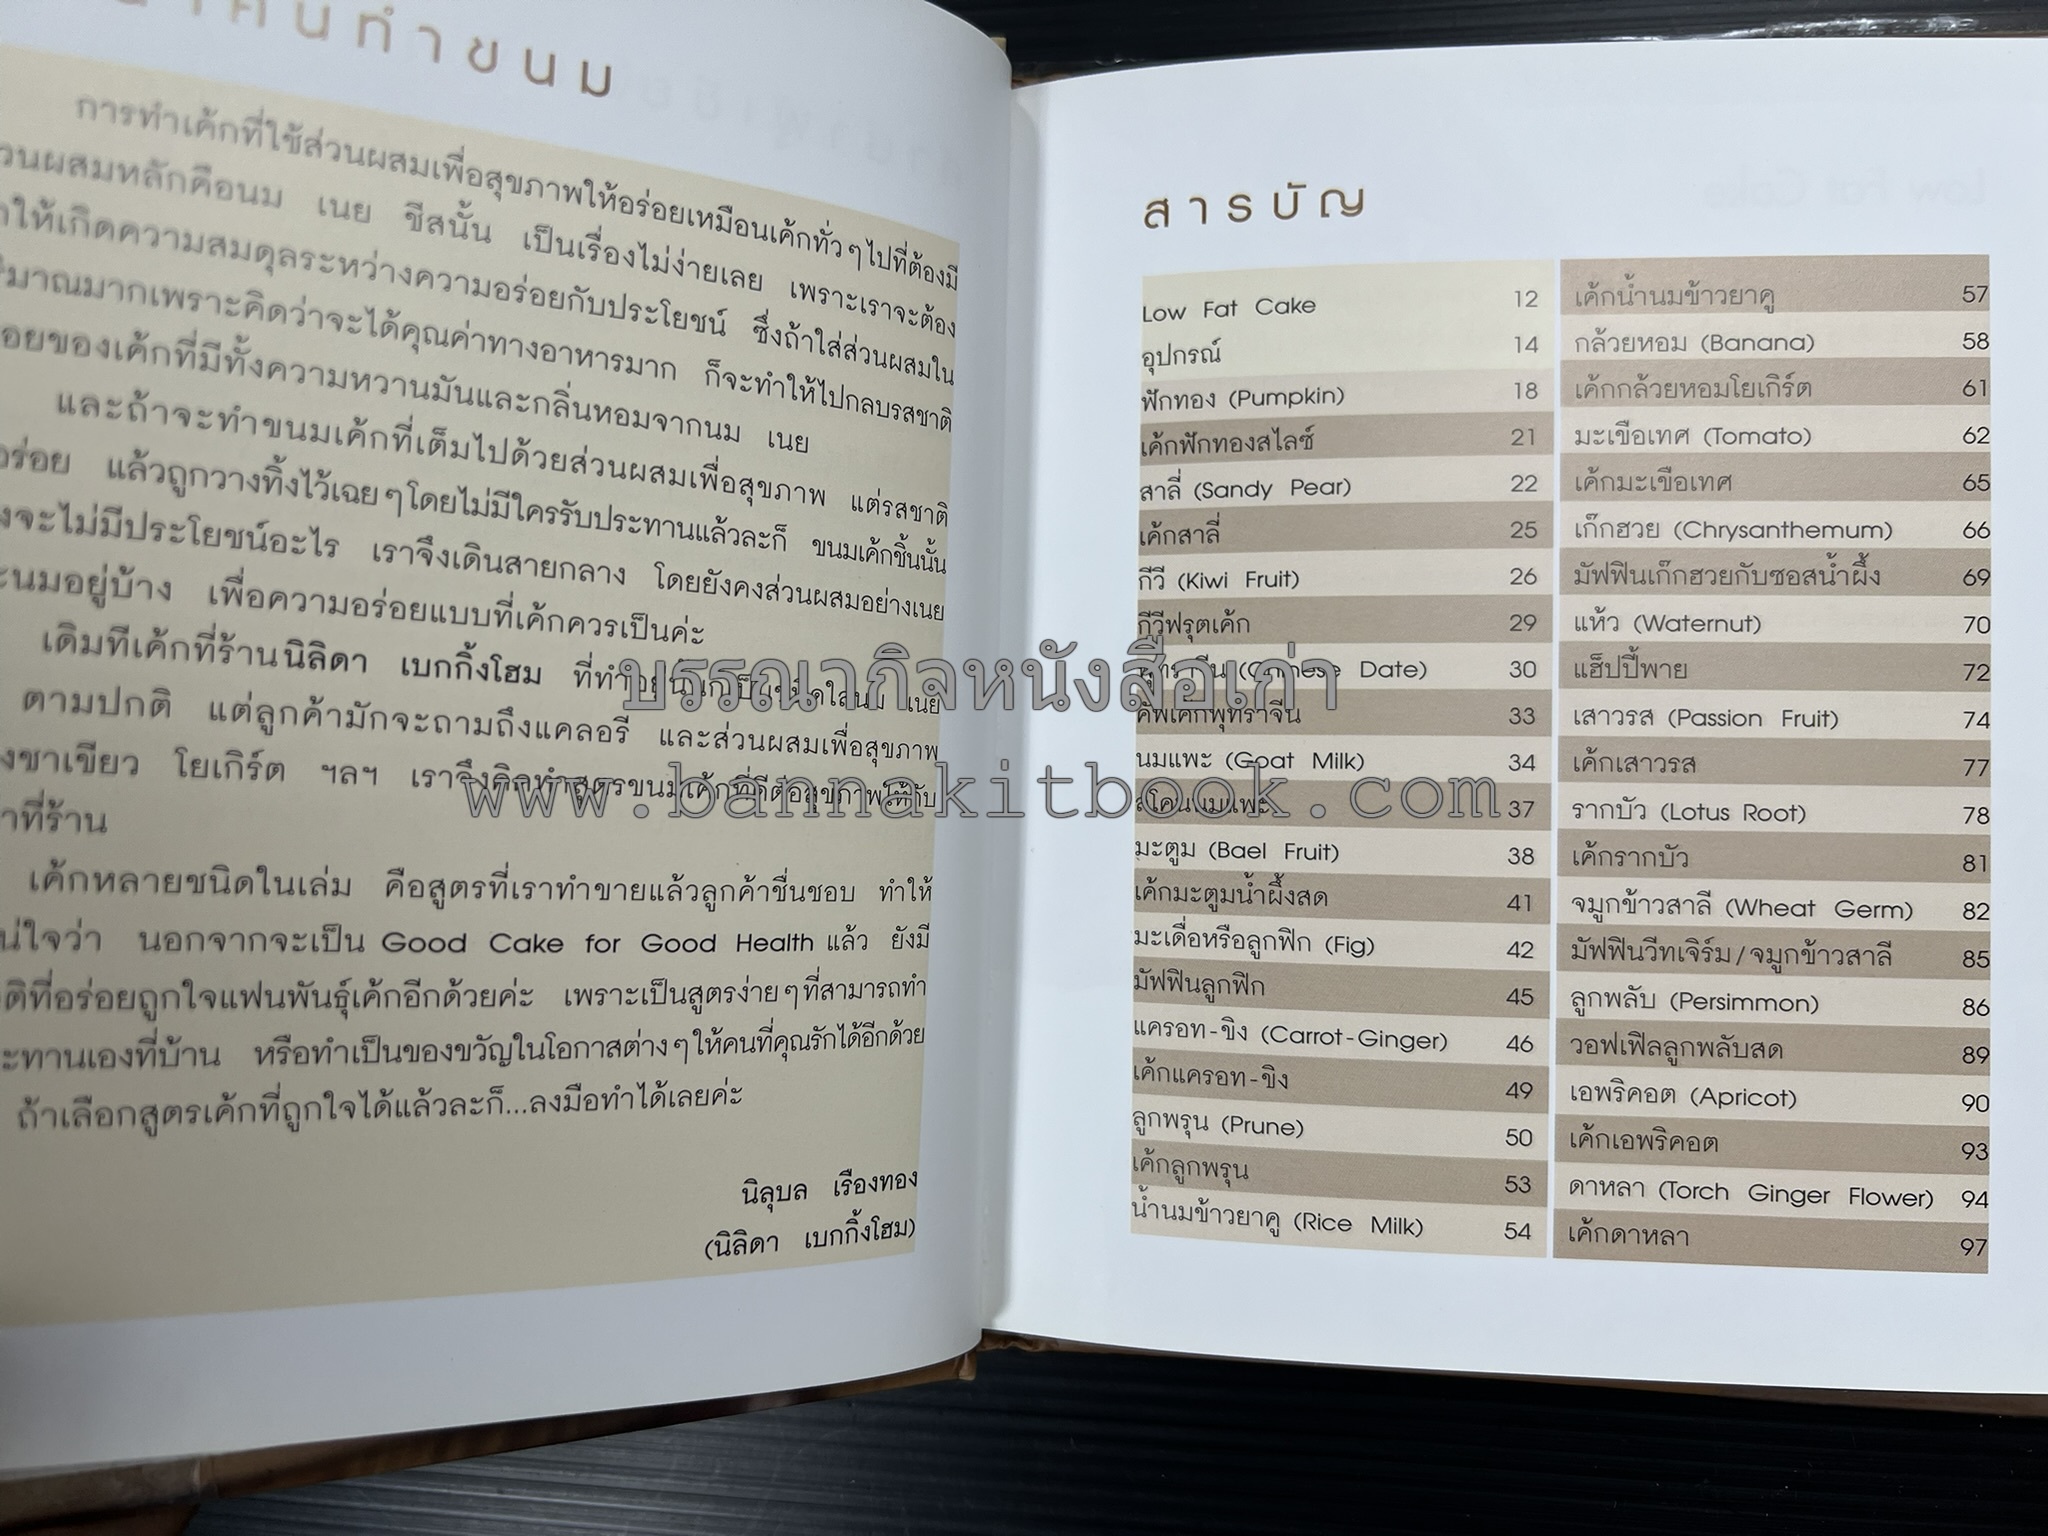 คนทำขนม
การทำเค้กที่ใช้ส่วนผสมเพื่อสุขภาพให้อร่อยเหมือนเค้กทั่วๆไปที่ต้องมี
วนผสมหลักคือนม เนย ชีสนั้น เป็นเรื่องไม่ง่ายเลย เพราะเราจะต้อง
ให้เกิดความสมดุลระหว่างความอร่อยกับประโยชน์ ซึ่งถ้าใส่ส่วนผสมใน
มาณมากเพราะคิดว่าจะได้คุณค่าทางอาหารมาก ก็จะทำให้ไปกลบรสชาติ
อยของเค้กที่มีทั้งความหวานมันและกลิ่นหอมจากนม เนย
และถ้าจะทำขนมเค้กที่เต็มไปด้วยส่วนผสมเพื่อสุขภาพ แต่รสชาติ
อร่อย แล้วถูกวางทิ้งไว้เฉยๆโดยไม่มีใครรับประทานแล้วละก็ ขนมเค้กชิ้นนั้น
งจะไม่มีประโยชน์อะไร เราจึงเดินสายกลาง โดยยังคงส่วนผสมอย่างเนย
ะนมอยู่บ้าง เพื่อความอร่อยแบบที่เค้กควรเป็นค่ะ
เดิมทีเค้กที่ร้านนิลิดา เบกกิ้งโฮม ที่ทำ ใส่นม เนย
ตามปกติ แต่ลูกค้ามักจะถามถึงแคลอรี และส่วนผสมเพื่อสุขภาพ
งชาเขียว โยเกิร์ต ฯลฯ เราจึงคิดทำสูตรขนมเค้กที่ดีต่อสุขภาพให้กับ
าที่ร้าน
เค้กหลายชนิดในเล่ม คือสูตรที่เราทำขายแล้วลูกค้าชื่นชอบ ทำให้
น่ใจว่า นอกจากจะเป็น Good Cake for Good Health แล้ว ยังมี
ติที่อร่อยถูกใจแฟนพันธุ์เค้กอีกด้วยค่ะ เพราะเป็นสูตรง่ายๆที่สามารถทำ
ะทานเองที่บ้าน หรือทำเป็นของขวัญในโอกาสต่างๆให้คนที่คุณรักได้อีกด้วย
ถ้าเลือกสูตรเค้กที่ถูกใจได้แล้วละก็...ลงมือทำได้เลยค่ะ
นิลุบล เรืองทอง
(นิลิดา เบกกิ้งโฮม)
บรรณากิจหนังสือเก่า
www.bannakitbook.com
สารบัญ
Low Fat Cake 12
อุปกรณ์ 14
ฟักทอง (Pumpkin) 18
เค้กฟักทองสไลซ์ 21
สาลี่ (Sandy Pear) 22
เค้กสาลี่ 25
กีวี (Kiwi Fruit) 26
กีวีฟรุตเค้ก 29
พุทราจีน (Chinese Date) 30
คัพเค้กพุทราจีน 33
นมแพะ (Goat Milk) 34
สโคนนมแพะ 37
มะตูม (Bael Fruit) 38
เค้กมะตูมน้ำผึ้งสด 41
มะเดื่อหรือลูกฟิก (Fig) 42
มัฟฟินลูกฟิก 45
แครอท-ขิง (Carrot-Ginger) 46
เค้กแครอท-ขิง 49
ลูกพรุน (Prune) 50
เค้กลูกพรุน 53
น้ำนมข้าวยาคู (Rice Milk) 54
เค้กน้ำนมข้าวยาคู 57
กล้วยหอม (Banana) 58
เค้กกล้วยหอมโยเกิร์ต 61
มะเขือเทศ (Tomato) 62
เค้กมะเขือเทศ 65
เก๊กฮวย (Chrysanthemum) 66
มัฟฟินเก๊กฮวยกับซอสน้ำผึ้ง 69
แห้ว (Waternut) 70
แฮ็ปปี้พาย 72
เสาวรส (Passion Fruit) 74
เค้กเสาวรส 77
รากบัว (Lotus Root) 78
เค้กรากบัว 81
จมูกข้าวสาลี (Wheat Germ) 82
มัฟฟินวีทเจิร์ม/จมูกข้าวสาลี 85
ลูกพลับ (Persimmon) 86
วอฟเฟิลลูกพลับสด 89
เอพริคอต (Apricot) 90
เค้กเอพริคอต 93
ดาหลา (Torch Ginger Flower) 94
เค้กดาหลา 97